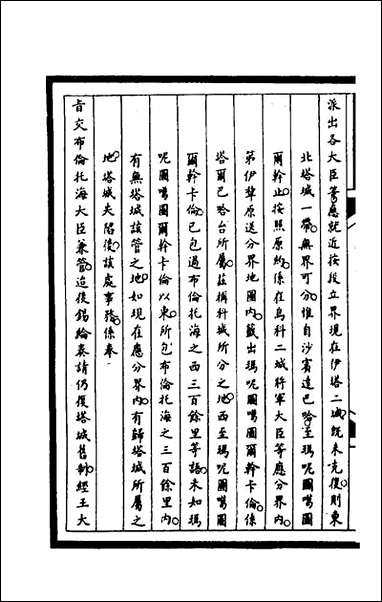 派出各大臣等應就近按段立界現在伊塔二城旣未克復則東
北塔城一帶無界可分惟自沙賓達巴哈至瑪呢圖噶圖
爾幹止按照原約係在烏科二城將軍大臣等應分界內
第伊犂原送分界地圖內籤出瑪呢圖噶圖爾幹卡倫係
塔爾巴哈台所屬茲稱科城所分之地西至瑪呢圖噶圖
爾幹卡倫已包過布倫托海之西三百餘里等語未知瑪
呢圖噶圖爾幹卡倫以東所包布倫托海之三百餘里內
有無塔城該管之地如現在應分界內有歸塔城所屬之
地塔城失陷後該處事務係奉
旨交布倫托海大臣兼管迨後錫綸奏請仍復塔城舊制經王大